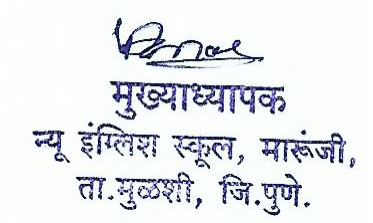 मुख्याध्यापक
न्यू इंग्लिश स्कूल, मारूंजी,
ता.मुळशी, जि.पुणे.